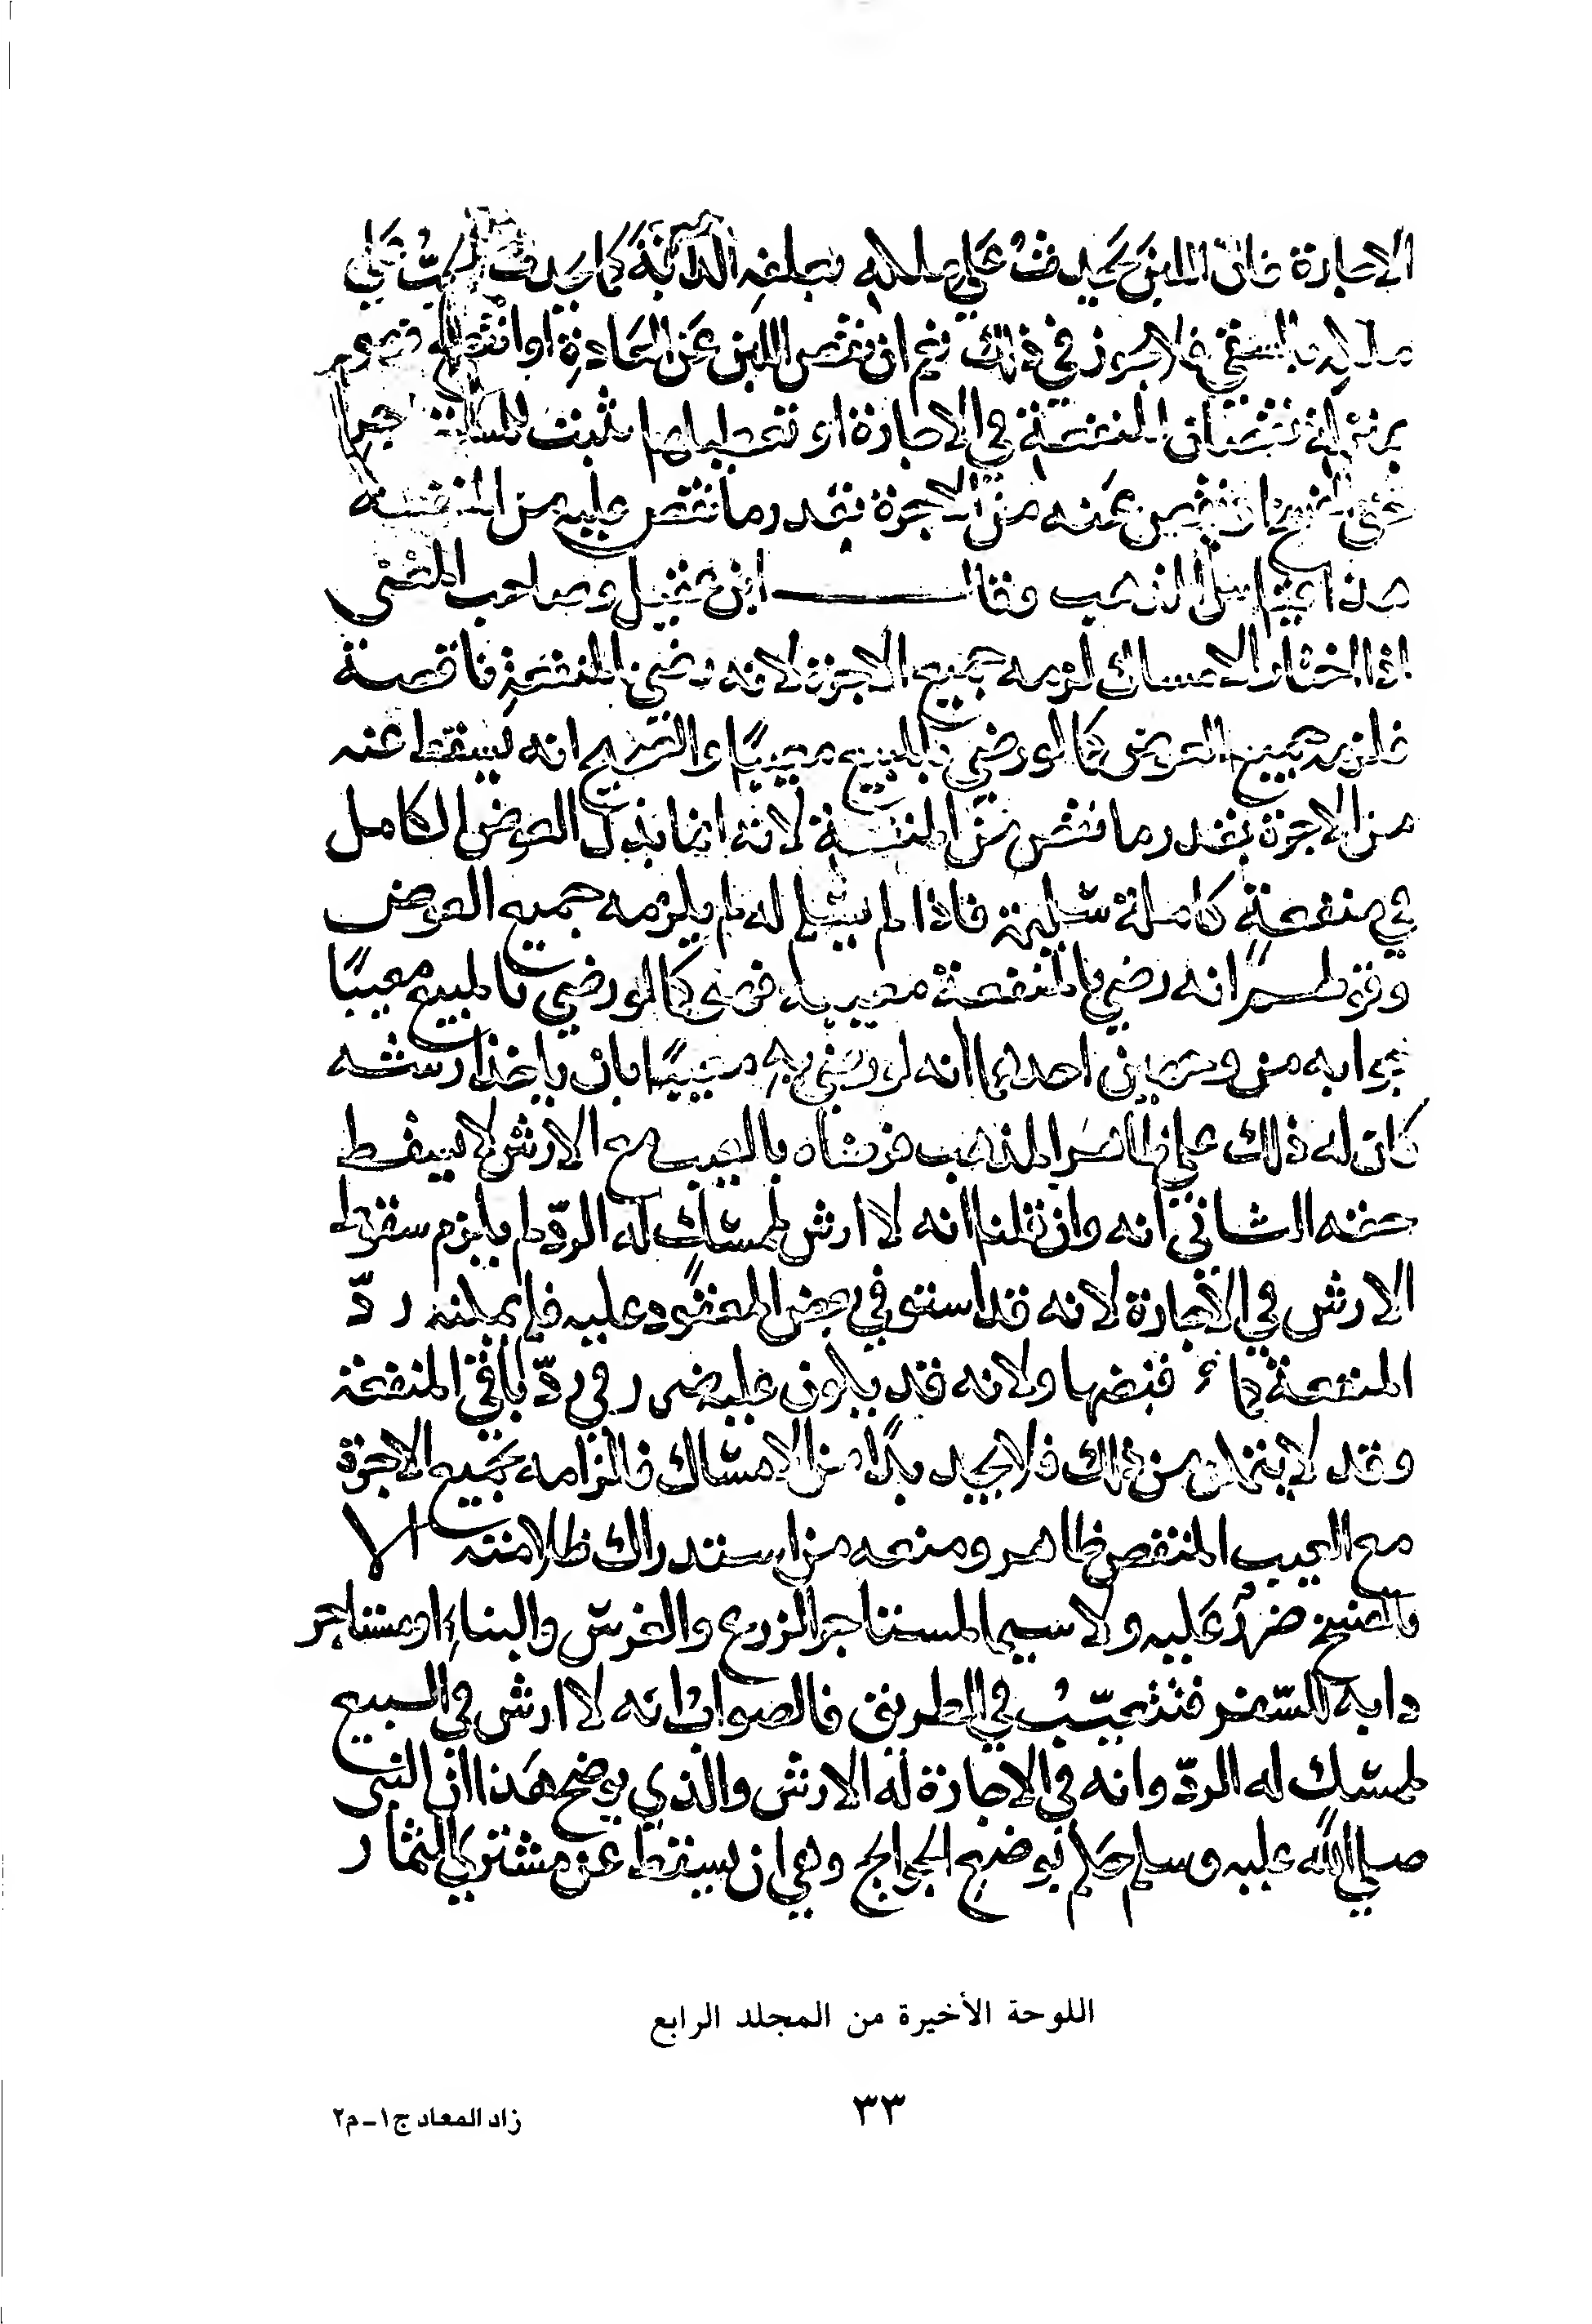 الاجارة فان اللبن يحدث علي ملكه بعلفه الدابة كما يحدث الحب علي
ملكه بالسقي فلا جور في ذلك نعم ان نقص اللبن عن العادة او انقطع فهو
بمنزلة نقصان المنفعة في الاجارة او تعطيلها يثبت للمستاجر
حق الفسخ او ينقص عنه من الاجرة بقدر ما نقص عليه من المنفعة
هذا قياس المذهب وقال ابن عقيل وصاحب المغني
اذا اختار الامساك لزمه جميع الاجرة لانه رضي بالمنفعة ناقصة
فلزمه جميع العوض كما لو رضي بالمبيع معيبًا والصحيح انه يسقط عنه
من الاجرة بقدر ما نقص من المنفعة لانه انما بذل العوض الكامل
في منفعة كاملة سليمة فاذا لم يسلم له لم يلزمه جميع العوض
وقولهم انه رضي بالمنفعة معيبة فهو كما لو رضي بالمبيع معيبًا
جوابه من وجهين احدهما انه لو رضي به معيبًا بان ياخذ ارشه
كان له ذلك علي ظاهر المذهب فرضاه بالعيب مع الارش لا يسقط
حقه الثاني انه وان قلنا انه لا ارش لممسك له الردّ لم يلزم سقوط
الارش في الاجارة لانه قد استوفي بعض المعقود عليه فلم يمكنه ردّ
المنفعة كما قبضها ولانه قد يكون عليه ضرر في ردّ باقي المنفعة
وقد لا يتمكن من ذلك فلا يجد بدًا من الامساك فالزامه بجميع الاجرة
مع العيب المنقص ظاهر ومنعه من استدراك ظلامته الا
بالفسخ ضررٌ عليه ولا سيما لمستاجر الزرع والغرس والبناء او مستاجر
دابة للسفر فتتعيّبُ في الطريق فالصواب انه لا ارش في المبيع
لممسك له الردّ وانه في الاجارة له الارش والذي يوضح هذا ان النبي
صلي الله عليه وسلم حكم بوضع الجوائح وهي ان يسقط عن مشتري الثمار
اللوحة الأخيرة من المجلد الرابع
٣٣
زاد المعاد ج١-م٢